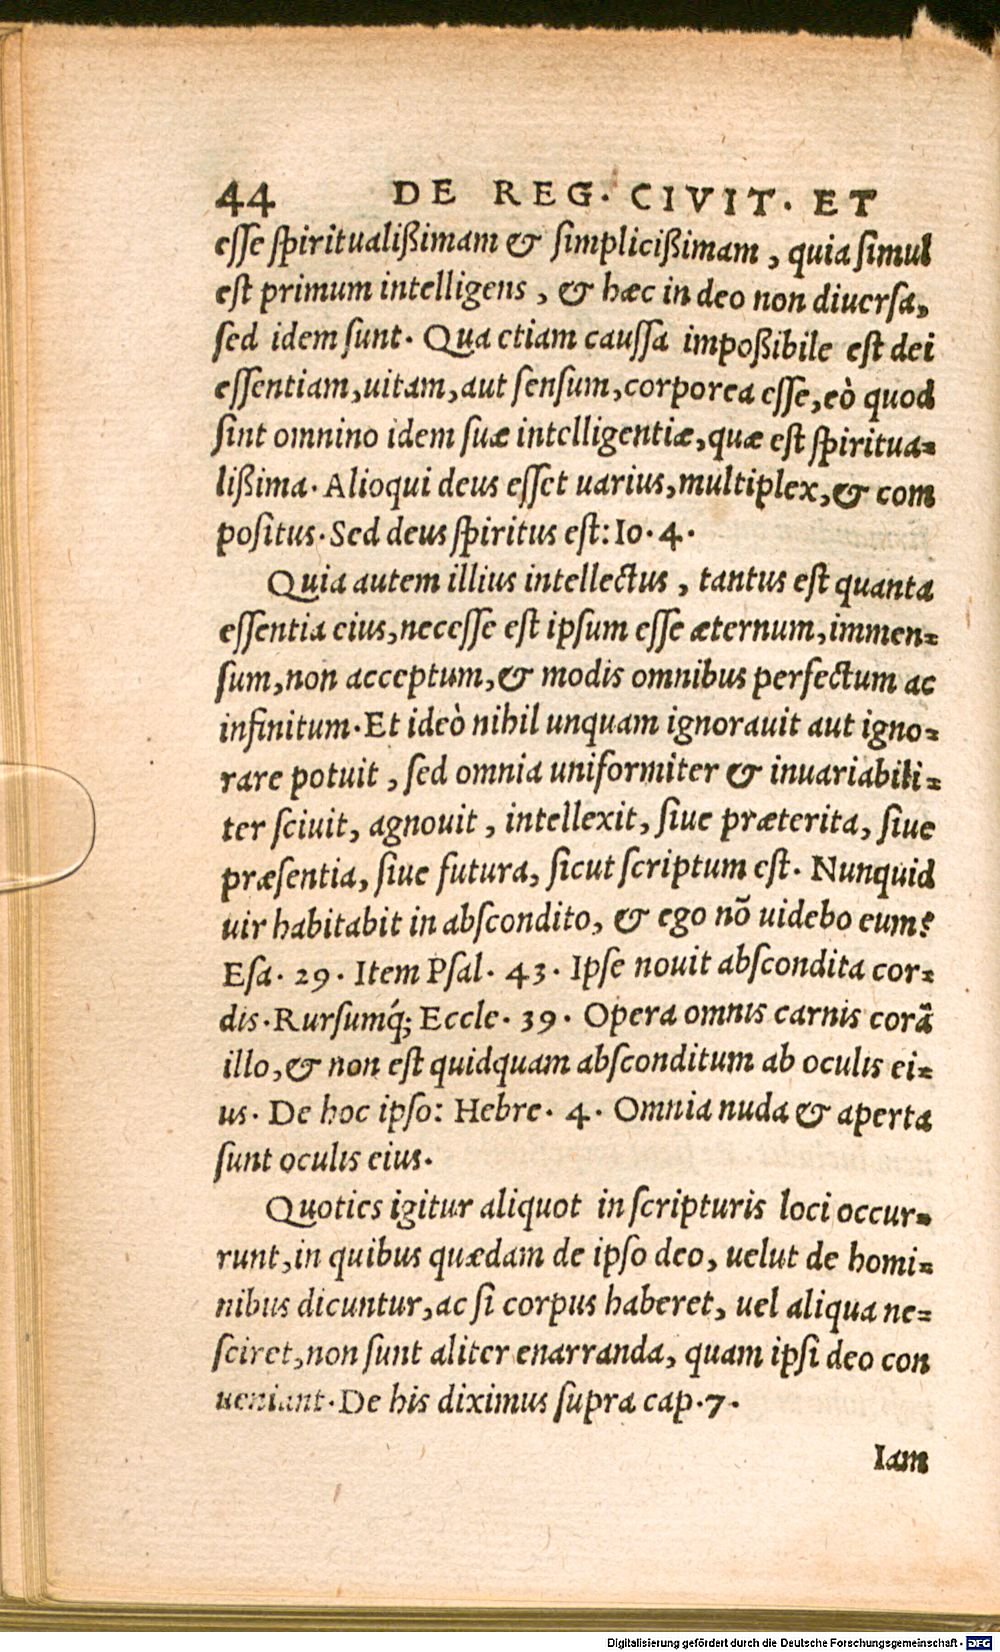 44 DE REG. CIVIT. ET
esse spiritualißimam & simplicißimam, quia simul
est primum intelligens, & hæc in deo non diuersa,
sed idem sunt. Qua etiam caussa impoßibile est dei
essentiam, uitam, aut sensum, corporea esse, eò quod
sint omnino idem suæ intelligentiæ, quæ est spiritua-
lißima. Alioqui deus esset uarius, multiplex, & com
positus. Sed deus spiritus est: Io. 4.
Quia autem illius intellectus, tantus est quanta
essentia eius, necesse est ipsum esse æternum, immen-
sum, non acceptum, & modis omnibus perfectum ac
infinitum. Et ideò nihil unquam ignorauit aut igno-
rare potuit, sed omnia uniformiter & inuariabili-
ter sciuit, agnouit, intellexit, siue præterita, siue
præsentia, siue futura, sicut scriptum est. Nunquid
uir habitabit in abscondito, & ego nõ uidebo eum?
Esa. 29. Item Psal. 43. Ipse nouit abscondita cor-
dis. Rursumq́; Eccle. 39. Opera omnis carnis corã
illo, & non est quidquam absconditum ab oculis ei-
us. De hoc ipso: Hebre. 4. Omnia nuda & aperta
sunt oculis eius.
Quoties igitur aliquot in scripturis loci occur-
runt, in quibus quædam de ipso deo, uelut de homi-
nibus dicuntur, ac si corpus haberet, uel aliqua ne-
sciret, non sunt aliter enarranda, quam ipsi deo con
ueniant. De his diximus supra cap. 7.
Iam
Digitalisierung gefördert durch die Deutsche Forschungsgemeinschaft - DFG